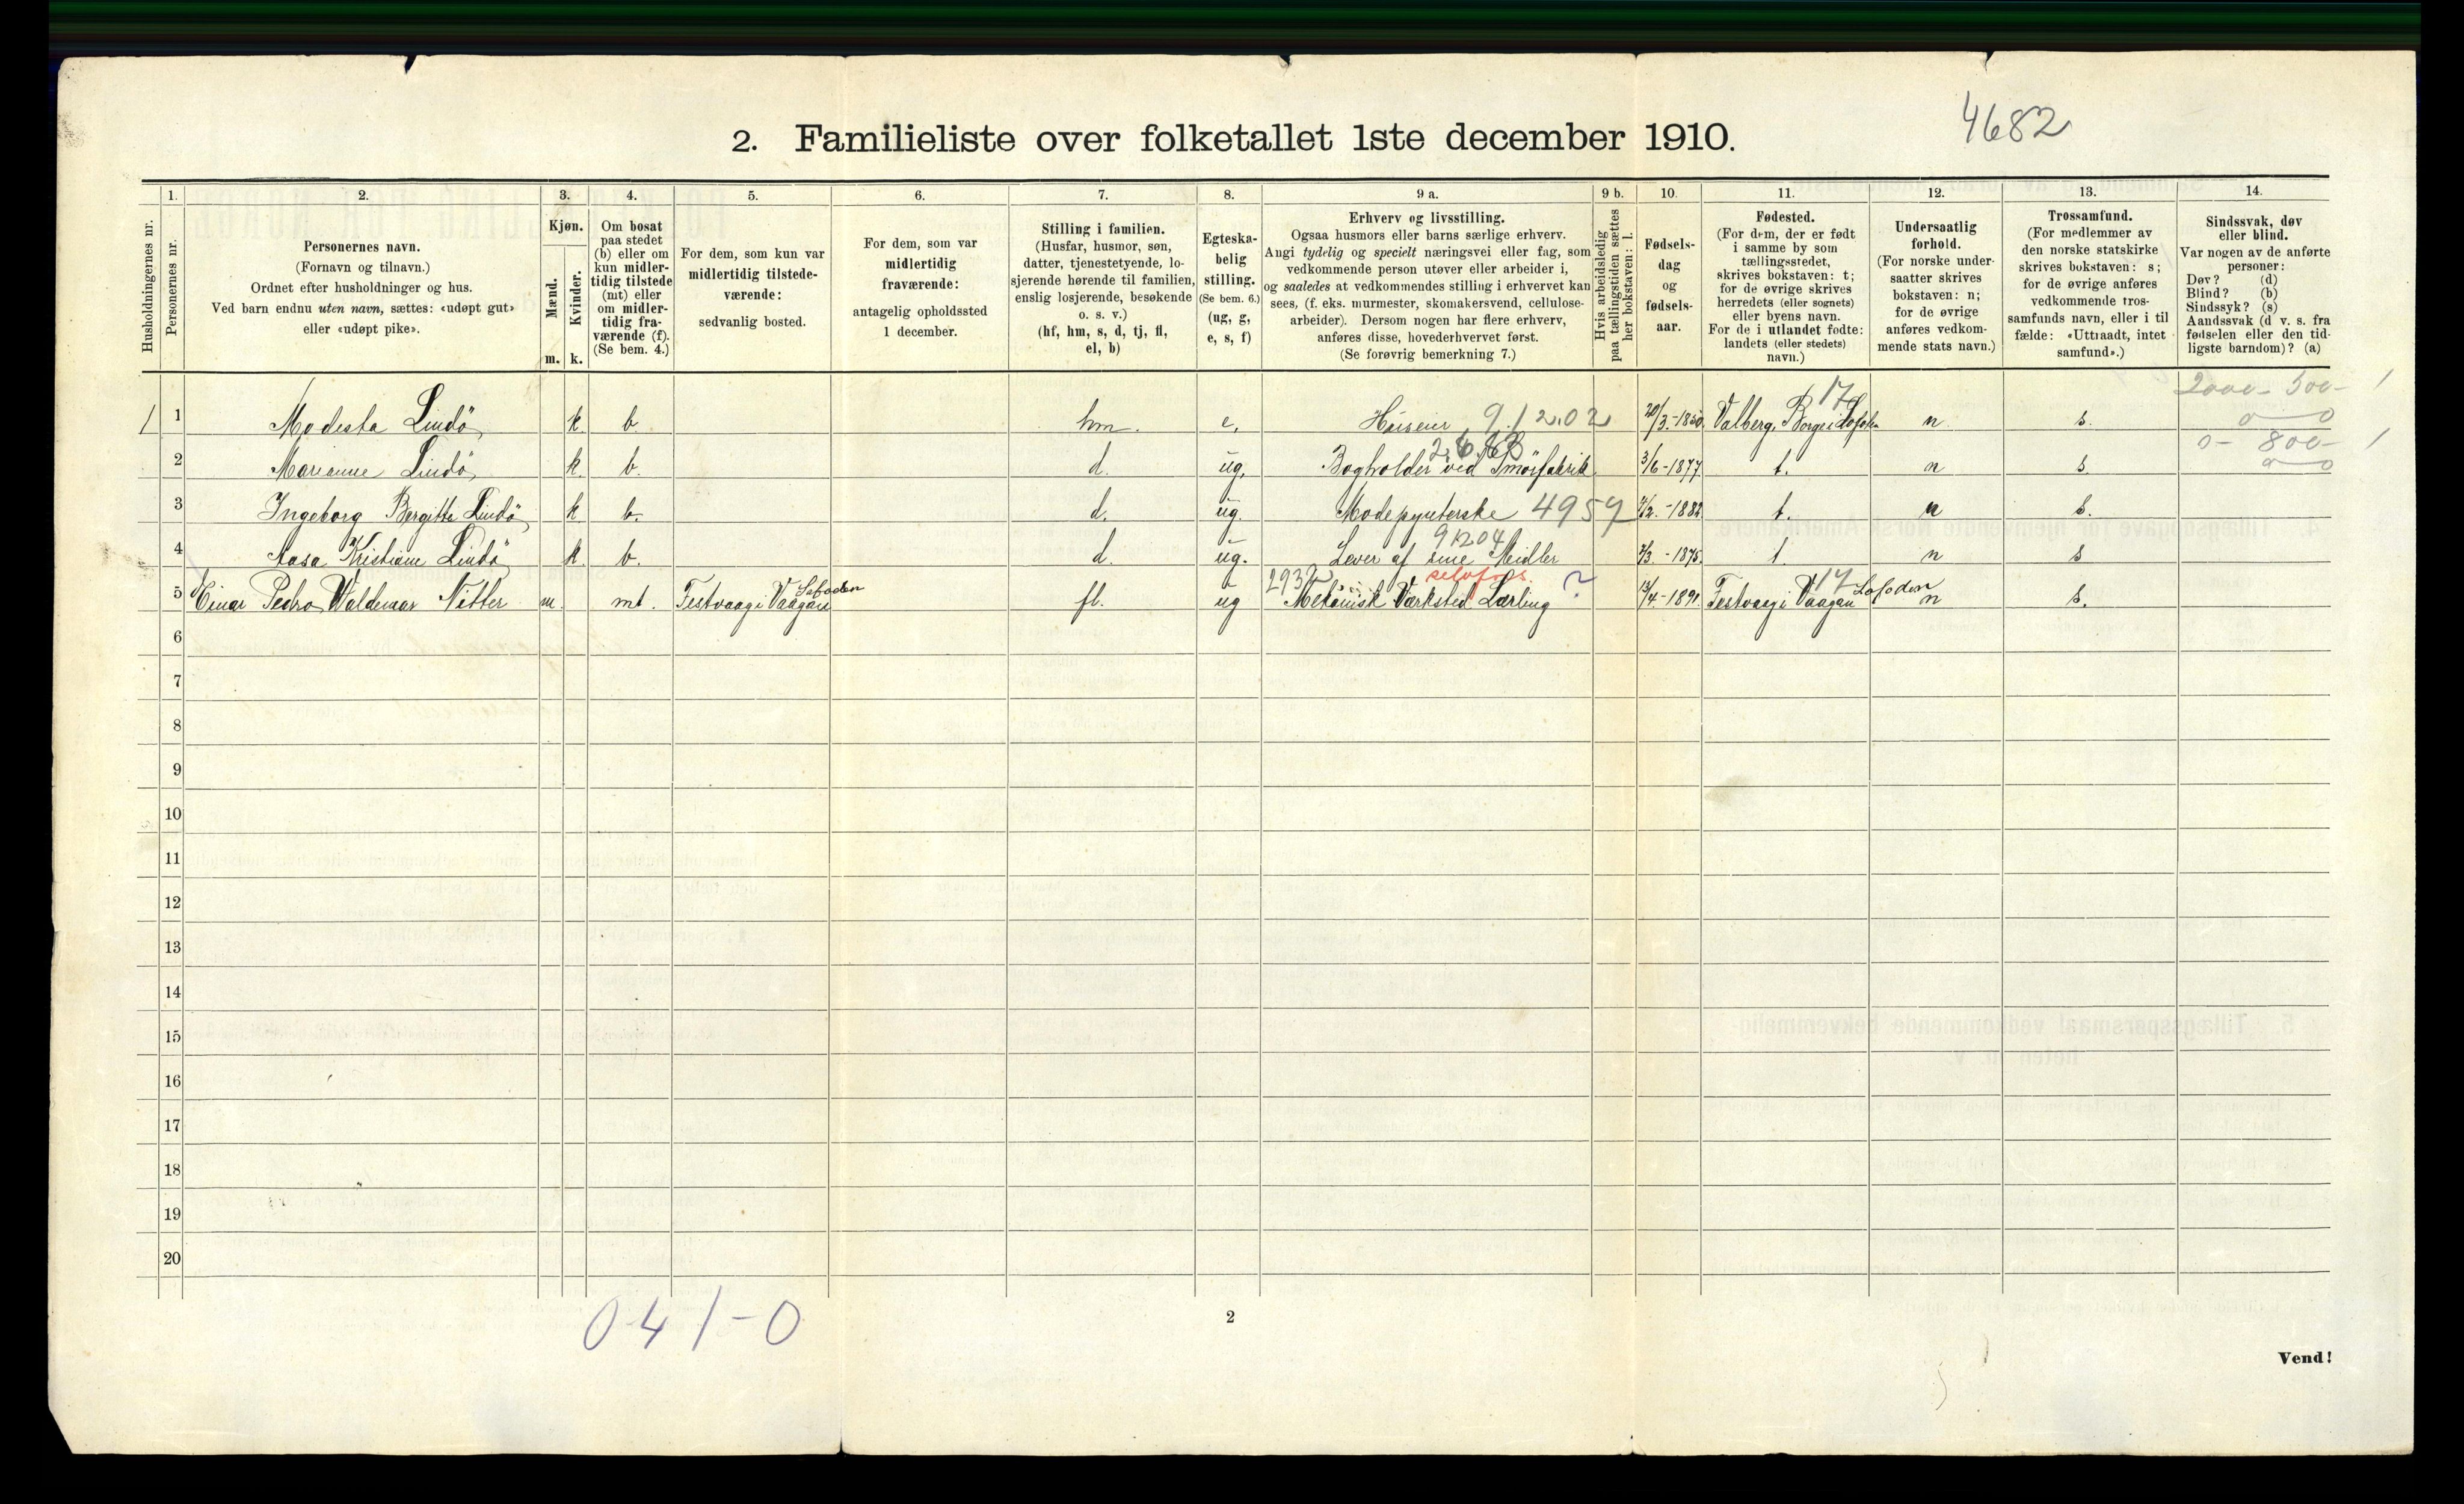 4682
2. Familieliste over folketallet 1ste december 1910.
1. 2. 3. 4. 5. 6. 7. 8. 9 a. 9 b. 10. 11. 12. 13. 14.
Husholdningernes nr.
Personernes nr.
Personernes navn.
(Fornavn og tilnavn.)
Ordnet efter husholdninger og hus.
Ved barn endnu uten navn, sættes: «udøpt gut»
eller «udøpt pike».
Kjøn.
Mænd.
Kvinder.
m. k.
Om bosat
paa stedet
(b) eller om
kun midler-
tidig tilstede
(mt) eller
om midler-
tidig fra-
værende (f).
(Se bem. 4.)
For dem, som kun var
midlertidig tilstede-
værende:
sedvanlig bosted.
For dem, som var
midlertidig
fraværende:
antagelig opholdssted
1 december.
Stilling i familien.
(Husfar, husmor, søn,
datter, tjenestetyende, lo-
sjerende hørende til familien,
enslig losjerende, besøkende
o. s. v.)
(hf, hm, s, d, tj, fl,
el, b)
Egteska-
belig
stilling.
(Se bem. 6.)
(ug, g,
e, s, f)
Erhverv og livsstilling.
Ogsaa husmors eller barns særlige erhverv.
Angi tydelig og specielt næringsvei eller fag, som
vedkommende person utøver eller arbeider i,
og saaledes at vedkommendes stilling i erhvervet kan
sees, (f. eks. murmester, skomakersvend, cellulose-
arbeider). Dersom nogen har flere erhverv,
anføres disse, hovederhvervet først.
(Se forøvrig bemerkning 7.)
Hvis arbeidsledig
paa tællingstiden sættes
her bokstaven: l.
Fødsels-
dag
og
fødsels-
aar.
Fødested.
(For dem, der er født
i samme by som
tællingsstedet,
skrives bokstaven: t;
for de øvrige skrives
herredets (eller sognets)
eller byens navn.
For de i utlandet fødte:
landets (eller stedets)
navn.)
Undersaatlig
forhold.
(For norske under-
saatter skrives
bokstaven: n;
for de øvrige
anføres vedkom-
mende stats navn.)
Trossamfund.
(For medlemmer av
den norske statskirke
skrives bokstaven: s;
for de øvrige anføres
vedkommende tros-
samfunds navn, eller i til
fælde: «Uttraadt, intet
samfund».)
Sindssvak, døv
eller blind.
Var nogen av de anførte
personer:
Døv? (d)
Blind? (b)
Sindssyk? (s)
Aandssvak (d v. s. fra
fødselen eller den tid-
ligste barndom)? (a)
17 2000- 500- 1
1 1 Modesta Lindö k b hm. e, Huseier 9.12.02 20/3.-1850. Valberg, Borge i Lofoten n s. 0 0
0- 800- 1
2 Marianne Lindö k. b. d. ug. Bogholder ved Smörfabrik 3/6-1877. t. n s. 0 0
3 Ingeborg Bergitte Lindö k b. d. ug. Modepynterske 4959 -1882 t. n s.
91204
4 Aasa Kristiane Lindö k. b. d. ug. Lever af sine Midler -1875. t. n s
2932 selvfors. ? 17
5 Einar Pedro Waldemar Nitter m. mt. Festvaag i Vaagan Lofoden fl. ug Mekanisk Værksted Lærling 13/4.-1891. Festvaag i Vaagan Lofoden n s.
6
7
8
9
10
11
12
13
14
15
16
17
18
19
20
0-4 1-0
2
Vend!